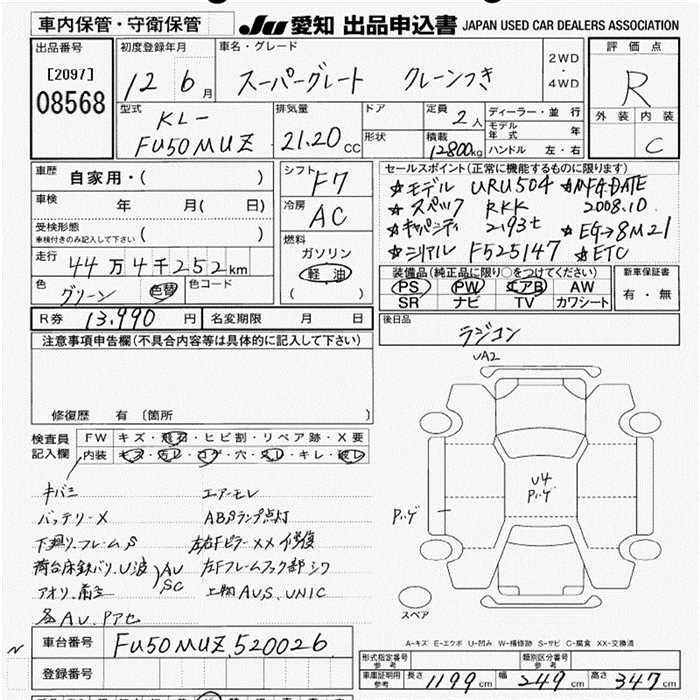 車内保管・守衛保管
JU 愛知 出品申込書 JAPAN USED CAR DEALERS ASSOCIATION
出品番号
[2097]
08568
初度登録年月
12 6月
車名・グレード
スーパーグレート クレーンつき
2WD
・
4WD
評価点
R
外装 内装
C
型式
KL-
FU50MUZ
排気量
21.20 CC
ドア
形状
定員
2人
積載
12800kg
ディーラー・並行
モデル年式 年
ハンドル 左・右
車歴
自家用・( )
車検
年 月( 日)
受検形態
車検付きのみ記入して下さい ( )
走行
44万4千252km
色
グリーン 色替
色コード
シフト
F7
冷房
AC
燃料
ガソリン
軽油
( )
セールスポイント(正常に機能するものに限ります)
☆モデル URU504 ☆MFG DATE
☆スペック RKK 2008.10
☆キャパシティ 2.93t ☆EG→8M21
☆シリアル F525147 ☆ETC
装備品(純正品に限り○をつけてください)
PS PW エアB AW
SR ナビ TV カワシート
新車保証書
有・無
R券 13,990円
名変期限 月 日
後日品
ラジコン
注意事項申告欄(不具合内容等は具体的に記入して下さい)
修復歴 有 〔箇所 〕
検査員
記入欄
FW キズ・飛石・ヒビ割・リペア跡・X要
内装 キズ・汚レ・コゲ・穴・スレ・キレ・破レ
キバミ エアーモレ
バッテリーX ABSランプ点灯
下廻り.フレームS 左右Fピラー XX 修復
荷台床鉄バリ.U波 左Fフレームフック部シワ
アオリ. AU
SC 上物AU,S,UNIC
各AU.Pアセ
UA2
U4
Pハゲ
Pハゲ
スペア
A-キズ E-エクボ U-凹み W-補修跡 S-サビ C-腐食 XX-交換済
車台番号
FU50MUZ.520026
登録番号
形式指定番号
参考
類別区分番号
参考
車庫証明用
参考
長さ 1199 cm 幅 249 cm 高さ 347 cm